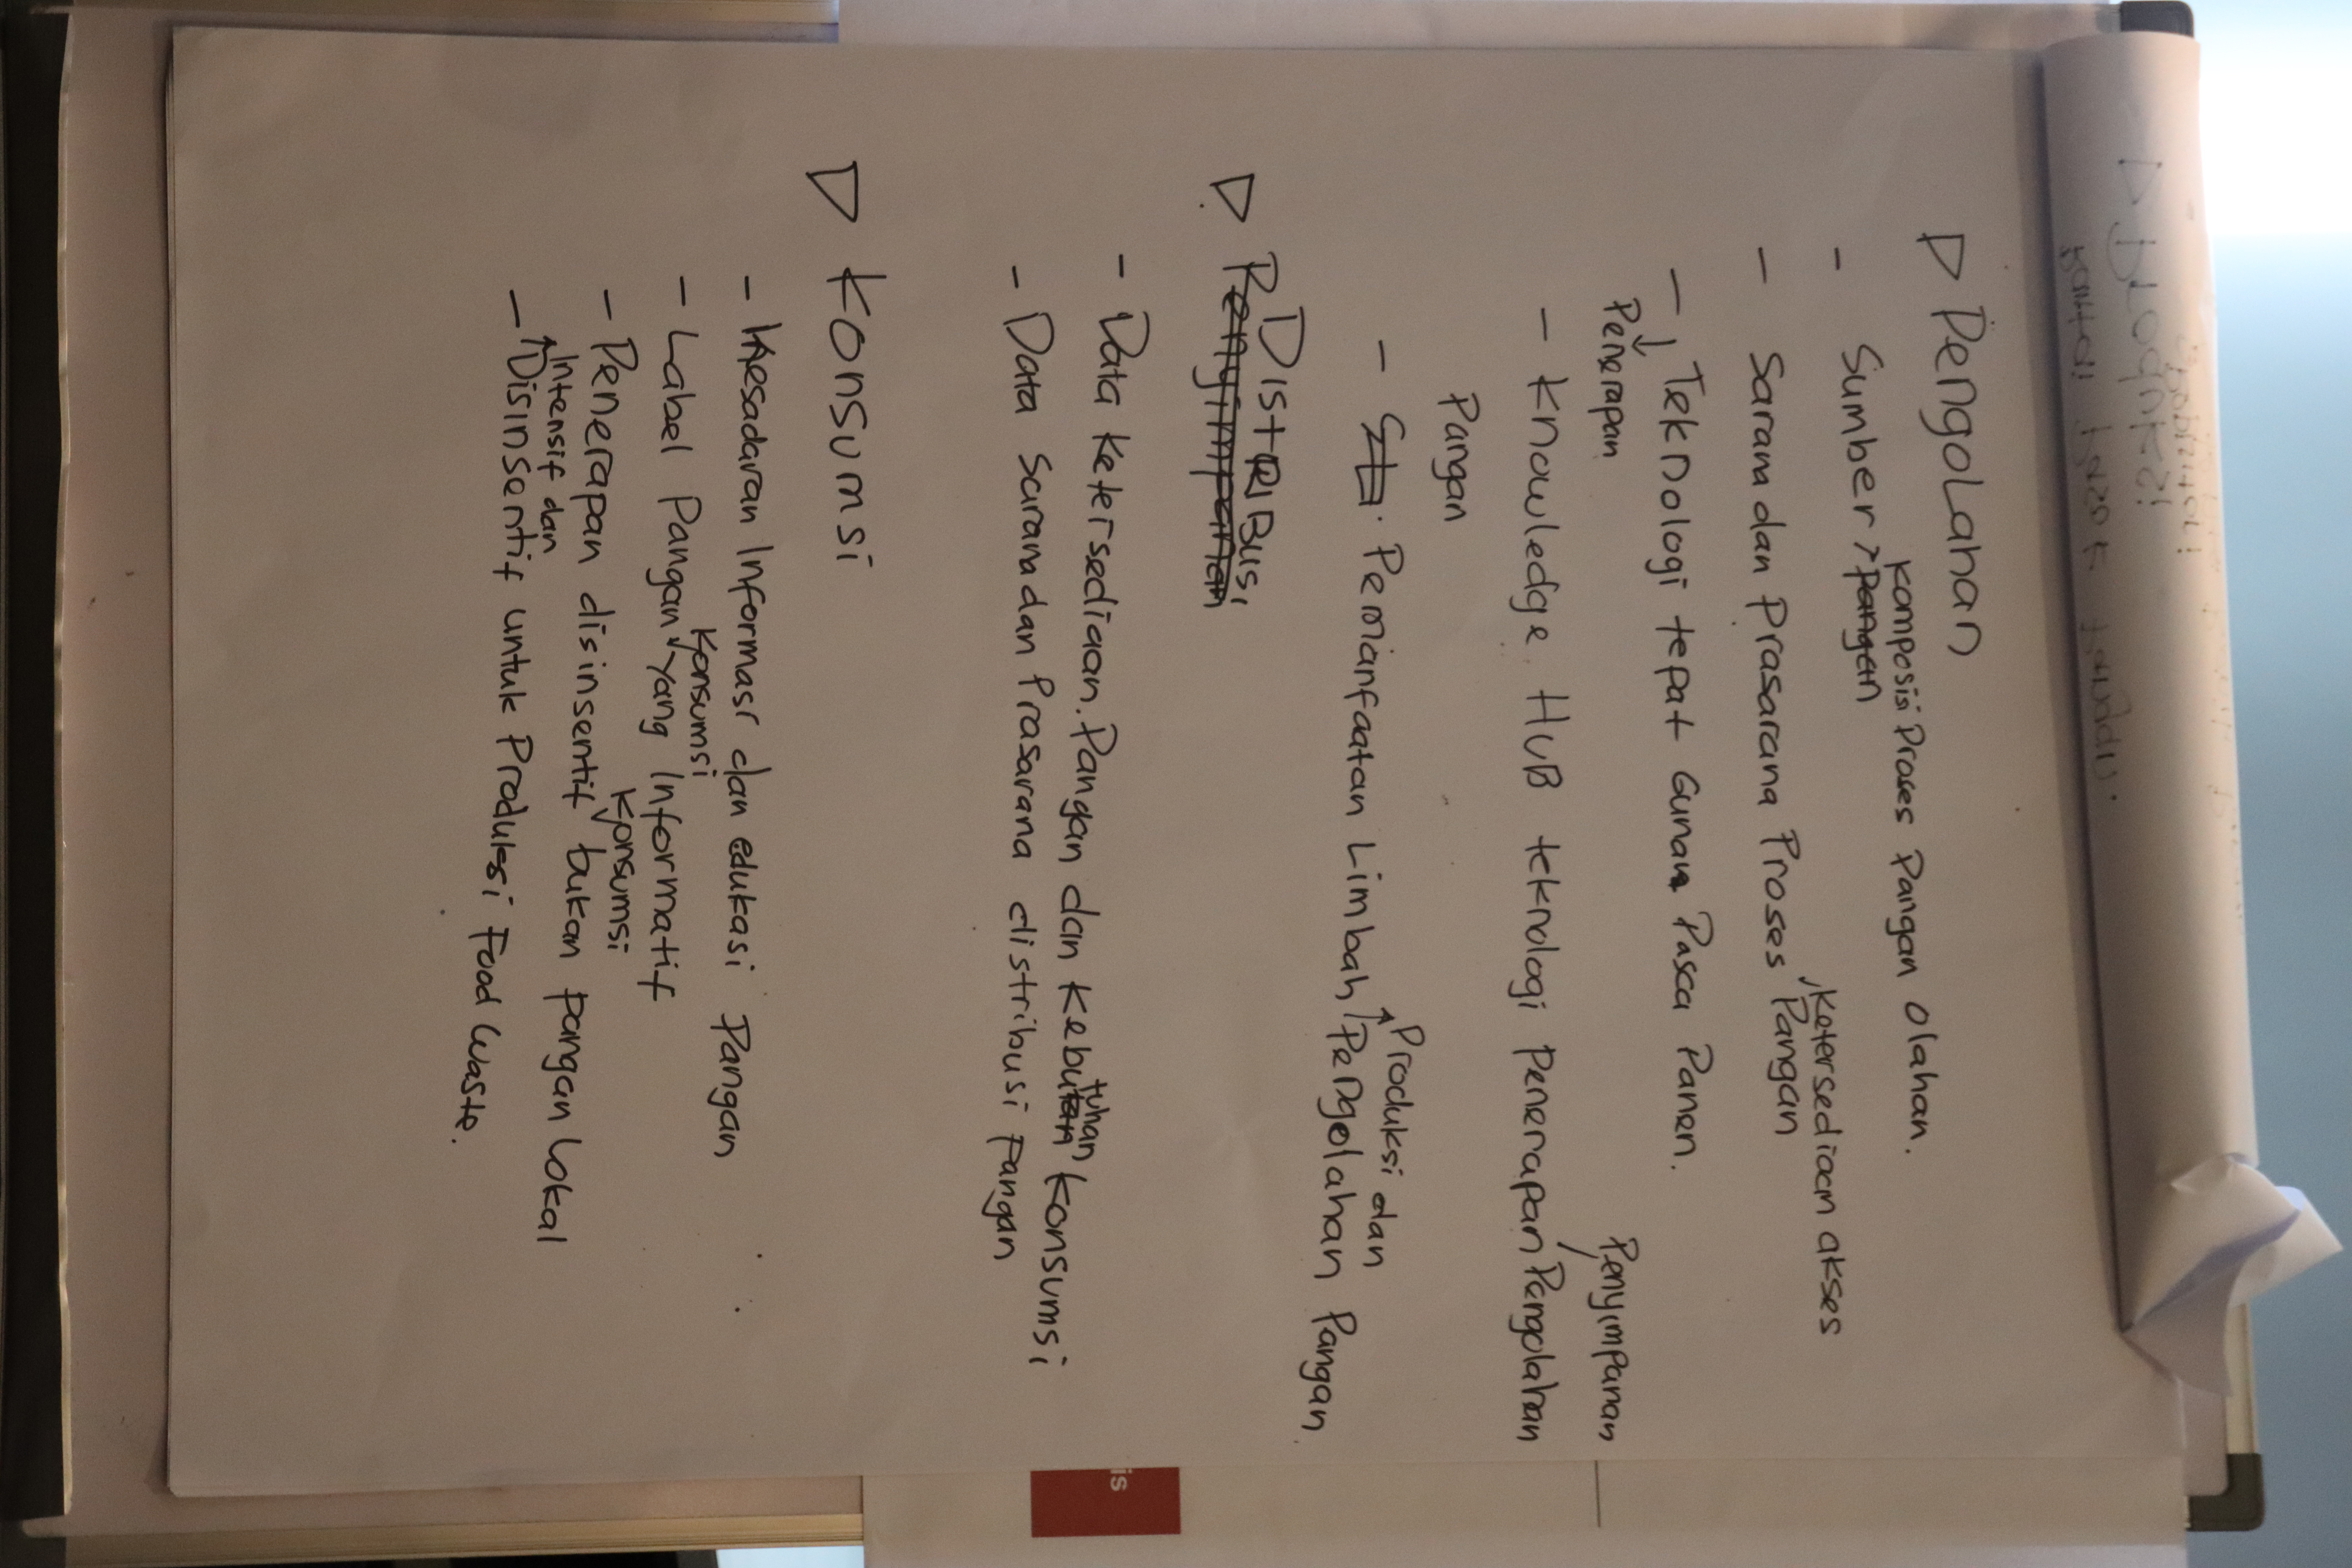 ▷ Pengolahan
- Sumber, Pangan Komposisi Proses Pangan Olahan.
- Sarana dan Prasarana Proses, Ketersediaan akses Pangan
- Penerapan Teknologi tepat Guna Pasca Panen.
- Knowledge HUB teknologi Penerapan Penyimpanan / Pengolahan
Pangan
- Pemanfaatan Limbah / Produksi dan Pengolahan Pangan
▷ Penyimpanan DISTRIBUSI
- Data Ketersediaan Pangan dan Kebutuhan Konsumsi
- Data Sarana dan Prasarana distribusi Pangan
▷ Konsumsi
- Kesadaran Informasi dan edukasi Pangan
- Label Pangan Konsumsi Yang Informatif
- Penerapan disinsentif Konsumsi bukan Pangan Lokal
- Intensif dan Disinsentif untuk Produksi Food Waste.
is